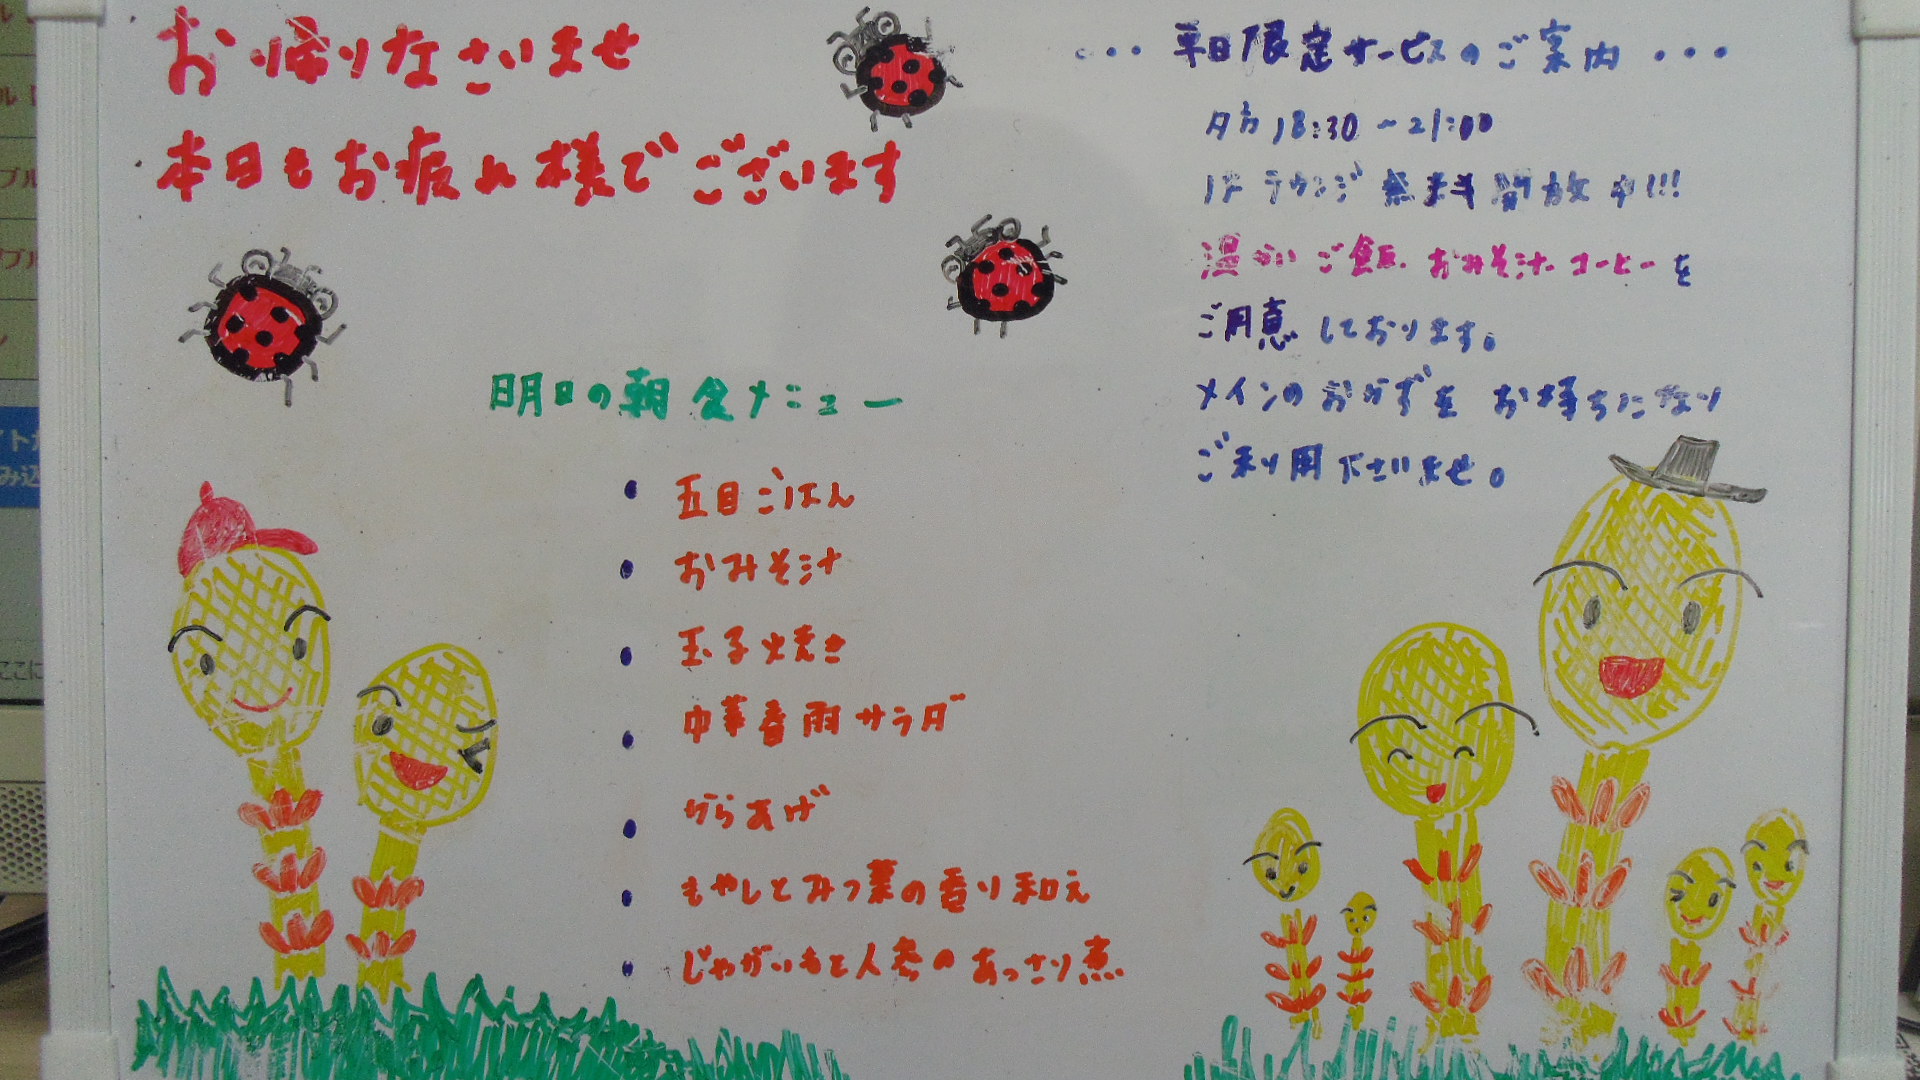 お帰りなさいませ
本日もお疲れ様でございます
明日の朝食メニュー
・五目ごはん
・おみそ汁
・玉子焼き
・中華春雨サラダ
・からあげ
・もやしとみつ葉の香り和え
・じゃがいもと人参のあっさり煮
・・・平日限定サービスのご案内・・・
夕方18:30~21:00
1Fラウンジ無料開放中!!!
温かいご飯、おみそ汁、コーヒーを
ご用意しております。
メインのおかずをお持ちになり
ご利用下さいませ。